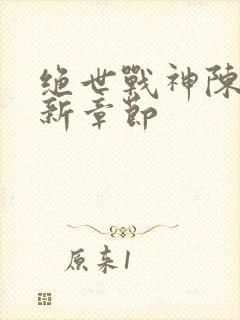 绝世戰神陳
新章節
原来1